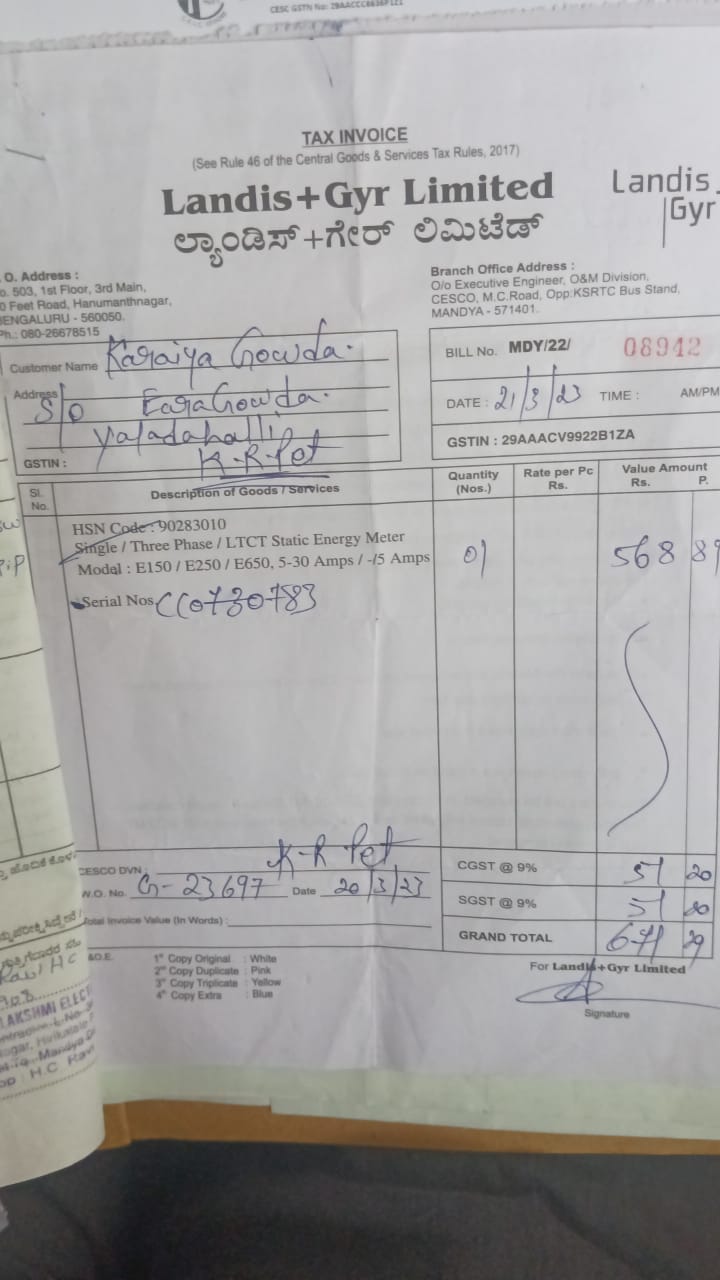 CESC GSTN No:
TAX INVOICE
(See Rule 46 of the Central Goods & Services Tax Rules, 2017)
Landis+Gyr Limited
ಲ್ಯಾಂಡಿಸ್+ಗೇರ್ ಲಿಮಿಟೆಡ್
Landis
Gyr
O. Address :
o. 503, 1st Floor, 3rd Main,
0 Feet Road, Hanumanthnagar,
BENGALURU - 560050.
Ph.: 080-26678515
Branch Office Address :
O/o Executive Engineer, O&M Division,
CESCO, M.C.Road, Opp:KSRTC Bus Stand,
MANDYA - 571401.
Customer Name Karaiya Gowda.
Address S/o EaraGowda.
Yaladahalli
GSTIN : K-R-Pet
BILL No. MDY/22/ 08942
DATE : 21/3/23 TIME : AM/PM
GSTIN : 29AAACV9922B1ZA
Sl. No. Description of Goods / Services Quantity (Nos.) Rate per Pc Rs. Value Amount Rs. P.
HSN Code : 90283010
Single / Three Phase / LTCT Static Energy Meter
Model : E150 / E250 / E650, 5-30 Amps / -/5 Amps 01 568 89
Serial Nos CC0730783
CESCO DVN : K-R Pet
W.O. No. G-23697 Date 20/3/23
Total Invoice Value (In Words) :
CGST @ 9% 51 20
SGST @ 9% 51 20
GRAND TOTAL 671 29
&O.E.
1st Copy Original : White
2nd Copy Duplicate : Pink
3rd Copy Triplicate : Yellow
4th Copy Extra : Blue
For Landis+Gyr Limited
Signature
LAKSHMI ELEC